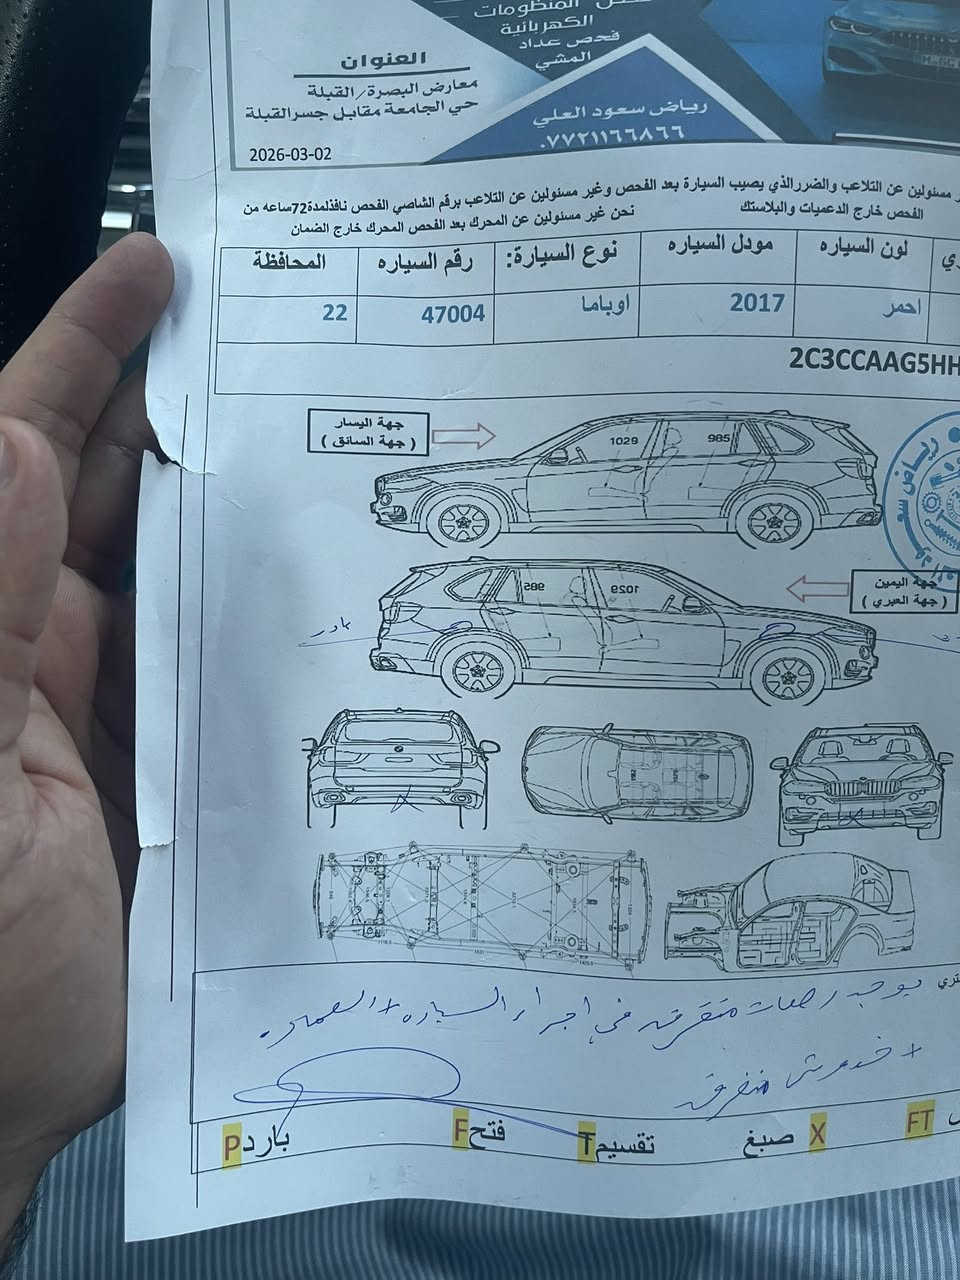 المنظومات
الكهربائية
فحص عداد
المشي
العنوان
معارض البصرة/القبلة
حي الجامعة مقابل جسر القبلة
رياض سعود العلي
٠٧٧٢١١٦٦٨٦٦
2026-03-02
مسئولين عن التلاعب والضرر الذي يصيب السيارة بعد الفحص وغير مسئولين عن التلاعب برقم الشاصي الفحص نافذ لمدة 72 ساعه من
الفحص خارج الدعميات والبلاستك
نحن غير مسئولين عن المحرك بعد الفحص المحرك خارج الضمان
لون السياره مودل السياره نوع السيارة: رقم السياره المحافظة
احمر 2017 اوباما 47004 22
2C3CCAAG5HH
جهة اليسار
( جهة السائق )
1029 985
جهة اليمين
( جهة العبري )
985 1029
بارد
يوجد رصعات متفرقه في اجزاء السياره + الصدر
+ خدوش متفرقه
FT
X صبغ
تقسيم T
فتح F
بارد P